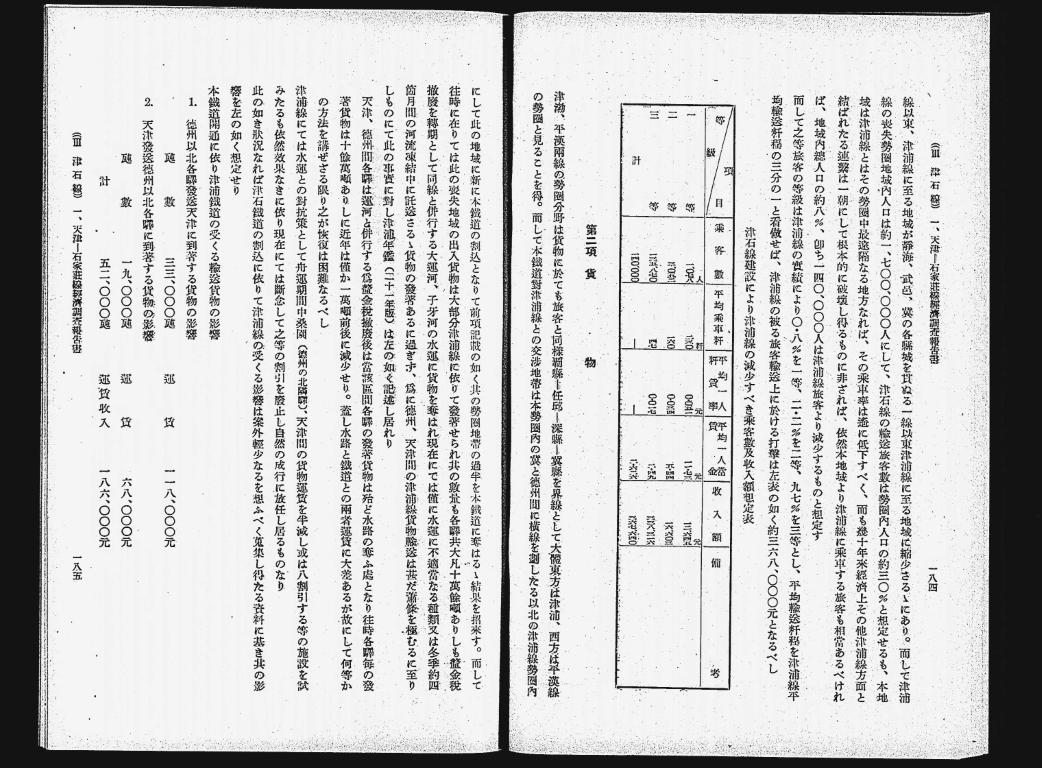 (Ⅲ 津石線) 一、天津—石家莊線經濟調査報告書
一八四
線以東、津浦線に至る地域が靜海、武邑、冀の各縣城を貫ぬる一線以東津浦線に至る地域に縮少さるゝにあり。而して津浦
線の喪失勢圏地域內人口は約一、七〇〇、〇〇〇人にして、津石線の輸送旅客數は勢圏內人口の約三〇％と想定せるも、本地
域は津浦線とはその勢圏中最遠隔なる地方なれば、その乘車率は遙に低下すべく、而も幾十年來經濟上その他津浦線方面と
結ばれたる連繫は一朝にして根本的に破壞し得るものに非ざれば、依然本地域より津浦線に乘車する旅客も相當あるべけれ
ば、地域內總人口の約八％、卽ち一四〇、〇〇〇人は津浦線旅客より減少するものと想定す
而して之等旅客の等級は津浦線の實績により〇・八％を一等、二・二％を二等、九七％を三等とし、平均輸送粁程を津浦線平
均輸送粁程の三分の一と看做せば、津浦線の被る旅客輸送上に於ける打擊は左表の如く約三六八、〇〇〇元となるべし
津石線建設により津浦線の減少すべき乘客數及收入額想定表
項目
等級
乘客數
平均乘車粁
平均一人粁賃率
平均一人當賃金
收入額
備考
人
粁
元
元
元
一等
二等
三等
計
第二項 貨物
津浦、平漢兩線の勢圏分野は貨物に於ても旅客と同樣霸縣—任邱—深縣—冀縣を界線として大體東方は津浦、西方は平漢線
の勢圏と見ることを得。而して本鐵道對津浦線との交涉地帶は本勢圏內の冀と德州間に橫線を劃したる以北の津浦線勢圏內
にして此の地域に新に本鐵道の割込となりて前項記載の如く其の勢圏地帶の過半を本鐵道に奪はるゝ結果を招來す。而して
往時に在りては此の喪失地域の出入貨物は大部分津浦線に依りて發著せられ其の數量も各驛共大凡十萬餘噸ありしも釐金稅
撤廢を轉期として同線と併行する大運河、子牙河の水運に貨物を奪はれ現在にては僅に水運に不適當なる種類又は冬季約四
箇月間の河流凍結中に託送さるゝ貨物の發著あるに過ぎず、爲に德州、天津間の津浦線貨物輸送は甚だ蕭條を極むるに至り
しものにて此の事實に對し津浦年鑑（二十一年版）は左の如く記述し居れり
天津、德州間各驛は運河と併行する爲釐金稅撤廢後は當該區間各驛の發著貨物は殆ど水路の奪ふ處となり往時各驛每の發
著貨物は十餘萬噸ありしに近年は僅か一萬噸前後に減少せり。蓋し水路と鐵道との兩者運賃に大差あるが故にして何等か
の方法を講ぜざる限り之が恢復は困難なるべし
津浦線にては水運との對抗策として舟運期間中桑園（德州の北隣驛）、天津間の貨物運賃を半減し或は八割引する等の施設を試
みたるも依然效果なきに依り現在にては斷念して之等の割引を廢止し自然の成行に放任し居るものなり
此の如き狀況なれば津石鐵道の割込に依りて津浦線の受くる影響は案外輕少なるを想ふべく蒐集し得たる資料に基き其の影
響を左の如く想定せり
本鐵道開通に依り津浦鐵道の受くる輸送貨物の影響
1. 德州以北各驛發送天津に到著する貨物の影響
噸數 三三、〇〇〇噸 運賃 一一八、〇〇〇元
2. 天津發送德州以北各驛に到著する貨物の影響
噸數 一九、〇〇〇噸 運賃 六八、〇〇〇元
計 五二、〇〇〇噸 運賃收入 一八六、〇〇〇元
(Ⅲ 津石線) 一、天津—石家莊線經濟調査報告書
一八五